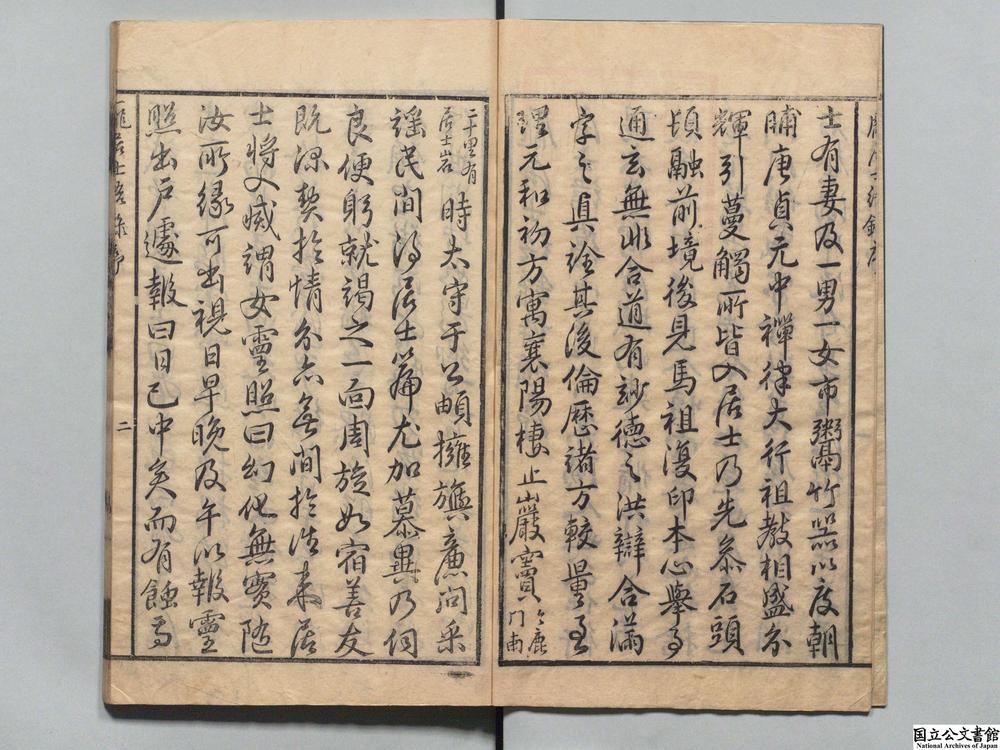 士有妻及一男一女市鬻竹器以度朝
晡唐貞元中禪律大行祖教相盛分
輝引蔓觸所皆入居士乃先參石頭
頃融前境後見馬祖復印本心舉事
通玄無非合道有妙德之洪辯合滿
字之真詮其後倫歷諸方較量至
理元和初方寓襄陽棲止巖竇今鹿門南
二十里有居士岩時太守于公頔擁旟廉問采
謠民間得居士篇尤加慕異乃伺
良便躬就謁之一面周旋如宿善友
既深契於情分亦無間於往來居
士將入滅謂女靈照曰幻化無實隨
汝所緣可出視日早晚及午以報靈
照出戶遽報曰日已中矣而有蝕焉
龐居士語錄序
二
国立公文書館
National Archives of Japan